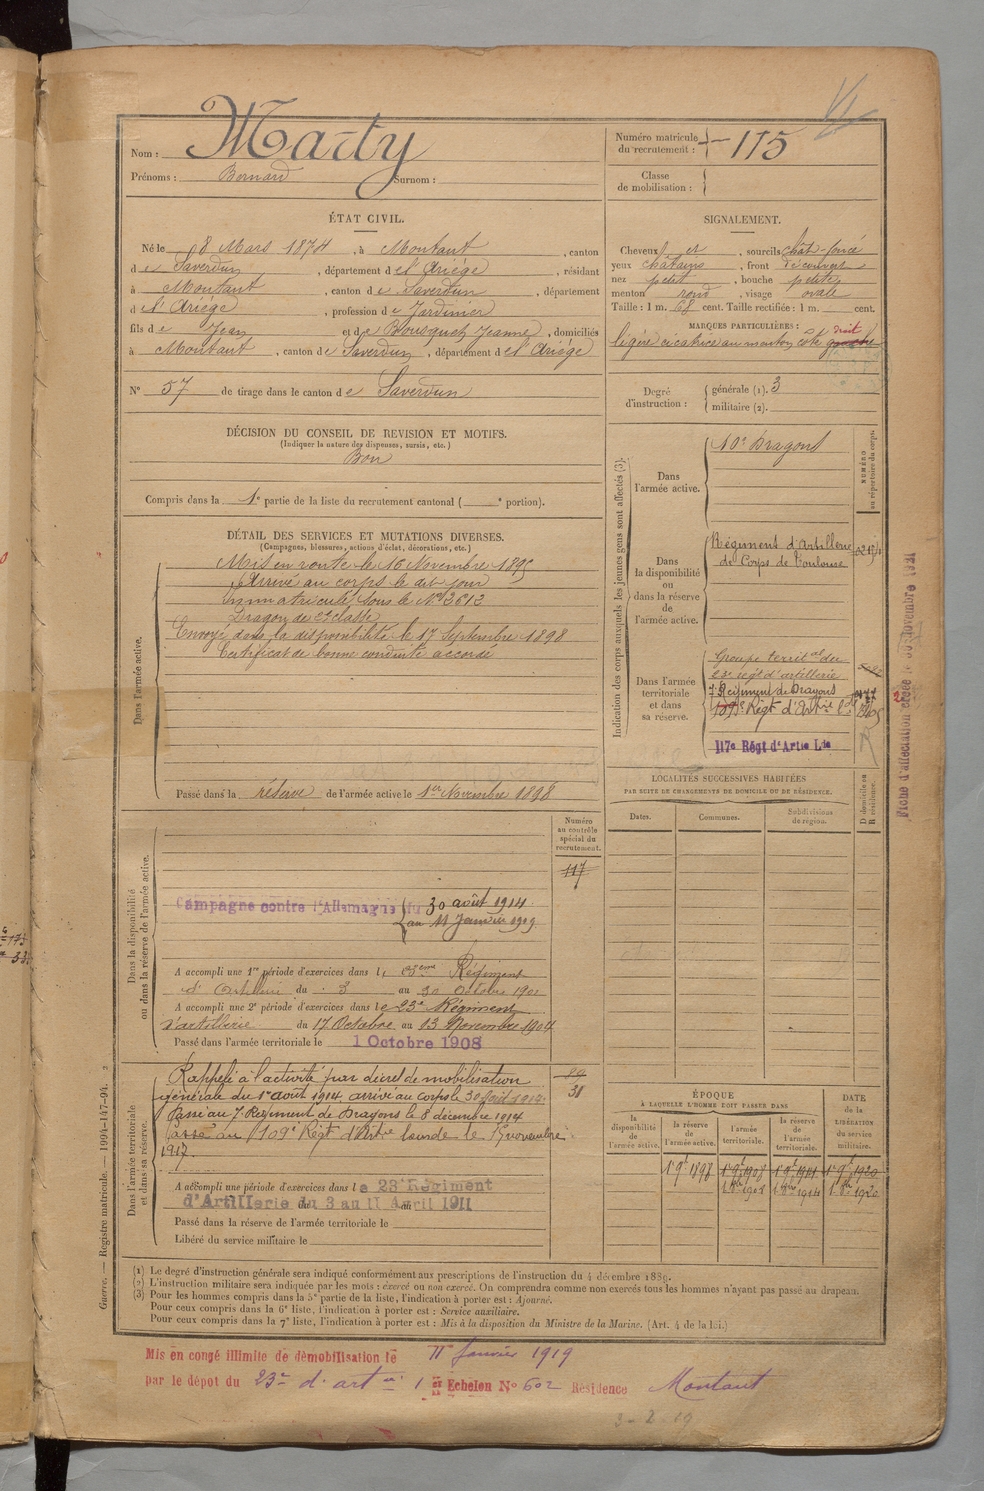 Nom : Marty
Prénoms : Bernard Surnom :
Numéro matricule du recrutement : 115
Classe de mobilisation :
ÉTAT CIVIL.
Né le 8 Mars 1874, à Montaut, canton
de Saverdun, département de l'Ariége, résidant
à Montaut, canton de Saverdun, département
de l'Ariége, profession de Jardinier
fils de Jean et de Bousquet Jeanne, domiciliés
à Montaut, canton de Saverdun, département de l'Ariége
N° 57 de tirage dans le canton de Saverdun
DÉCISION DU CONSEIL DE REVISION ET MOTIFS.
(Indiquer la nature des dispenses, sursis, etc.)
Bon
Compris dans la 1e partie de la liste du recrutement cantonal ( e portion).
SIGNALEMENT.
Cheveux et, sourcils chât-foncé
yeux châtains, front découvert
nez petit, bouche petite
menton rond, visage ovale
Taille : 1 m. 68 cent. Taille rectifiée : 1 m. cent.
MARQUES PARTICULIÈRES :
légère cicatrice au menton côté gauche droit
Degré d'instruction :
générale (1). 3
militaire (2).
DÉTAIL DES SERVICES ET MUTATIONS DIVERSES.
(Campagnes, blessures, actions d'éclat, décorations, etc.)
Dans l'armée active.
Mis en route le 16 Novembre 1895
Arrivé au corps le dit jour
Immatriculé sous le N° 3612
Dragon de 2e classe
Envoyé dans la disponibilité le 17 Septembre 1898
Certificat de bonne conduite accordé
Passé dans la réserve de l'armée active le 1er Novembre 1898
Indication des corps auxquels les jeunes gens sont affectés (3).
NUMÉRO au répertoire du corps.
Dans l'armée active.
10e Dragons
Dans la disponibilité ou dans la réserve de l'armée active.
Régiment d'Artillerie
de Corps de Toulouse
Dans l'armée territoriale et dans sa réserve.
Groupe territal du
23e régt d'artillerie
7e Régiment de Dragons
109e Régt d'Artrie lde
117e Régt d'Artie Lde
LOCALITÉS SUCCESSIVES HABITÉES
PAR SUITE DE CHANGEMENTS DE DOMICILE OU DE RÉSIDENCE.
Dates.
Communes.
Subdivisions de région.
D domicile ou R résidence.
Dans la disponibilité ou dans la réserve de l'armée active.
Numéro au contrôle spécial du recrutement.
117
Campagne contre l'Allemagne du 30 août 1914
au 11 Janvier 1919
A accompli une 1re période d'exercices dans le 23eme Régiment
d'Artillerie du 3 au 30 Octobre
A accompli une 2e période d'exercices dans le 23e Régiment
d'artillerie du 17 Octobre au 13 Novembre 1904
Passé dans l'armée territoriale le 1 Octobre 1908
Dans l'armée territoriale et dans sa réserve.
31
Rappelé à l'activité par décret de mobilisation
générale du 1er août 1914 arrivé au corps le 30 Août 1914.
Passé au 7 Régiment de Dragons le 8 décembre 1914
Passé au 109e Régt d'Artrie lourde le 1 novembre
1917
A accompli une période d'exercices dans le 23e Régiment
d'Artillerie du 3 au 11 Avril 1911
Passé dans la réserve de l'armée territoriale le
Libéré du service militaire le
ÉPOQUE
À LAQUELLE L'HOMME DOIT PASSER DANS
la disponibilité de l'armée active.
la réserve de l'armée active.
l'armée territoriale.
la réserve de l'armée territoriale.
DATE de la LIBÉRATION du service militaire.
1 9e 1898 1 9e 1908 1 9e 1914 1 9e 1920
(1) Le degré d'instruction générale sera indiqué conformément aux prescriptions de l'instruction du 4 décembre 1889.
(2) L'instruction militaire sera indiquée par les mots : exercé ou non exercé. On comprendra comme non exercés tous les hommes n'ayant pas passé au drapeau.
(3) Pour les hommes compris dans la 5e partie de la liste, l'indication à porter est : Ajourné.
Pour ceux compris dans la 6e liste, l'indication à porter est : Service auxiliaire.
Pour ceux compris dans la 7e liste, l'indication à porter est : Mis à la disposition du Ministre de la Marine. (Art. 4 de la loi.)
Guerre. — Registre matricule. — 1994-147-94.
Mis en congé illimité de démobilisation le 11 Janvier 1919
par le dépôt du 23e d'artie 1er Echelon N° 602 Résidence Montaut
3-2-19